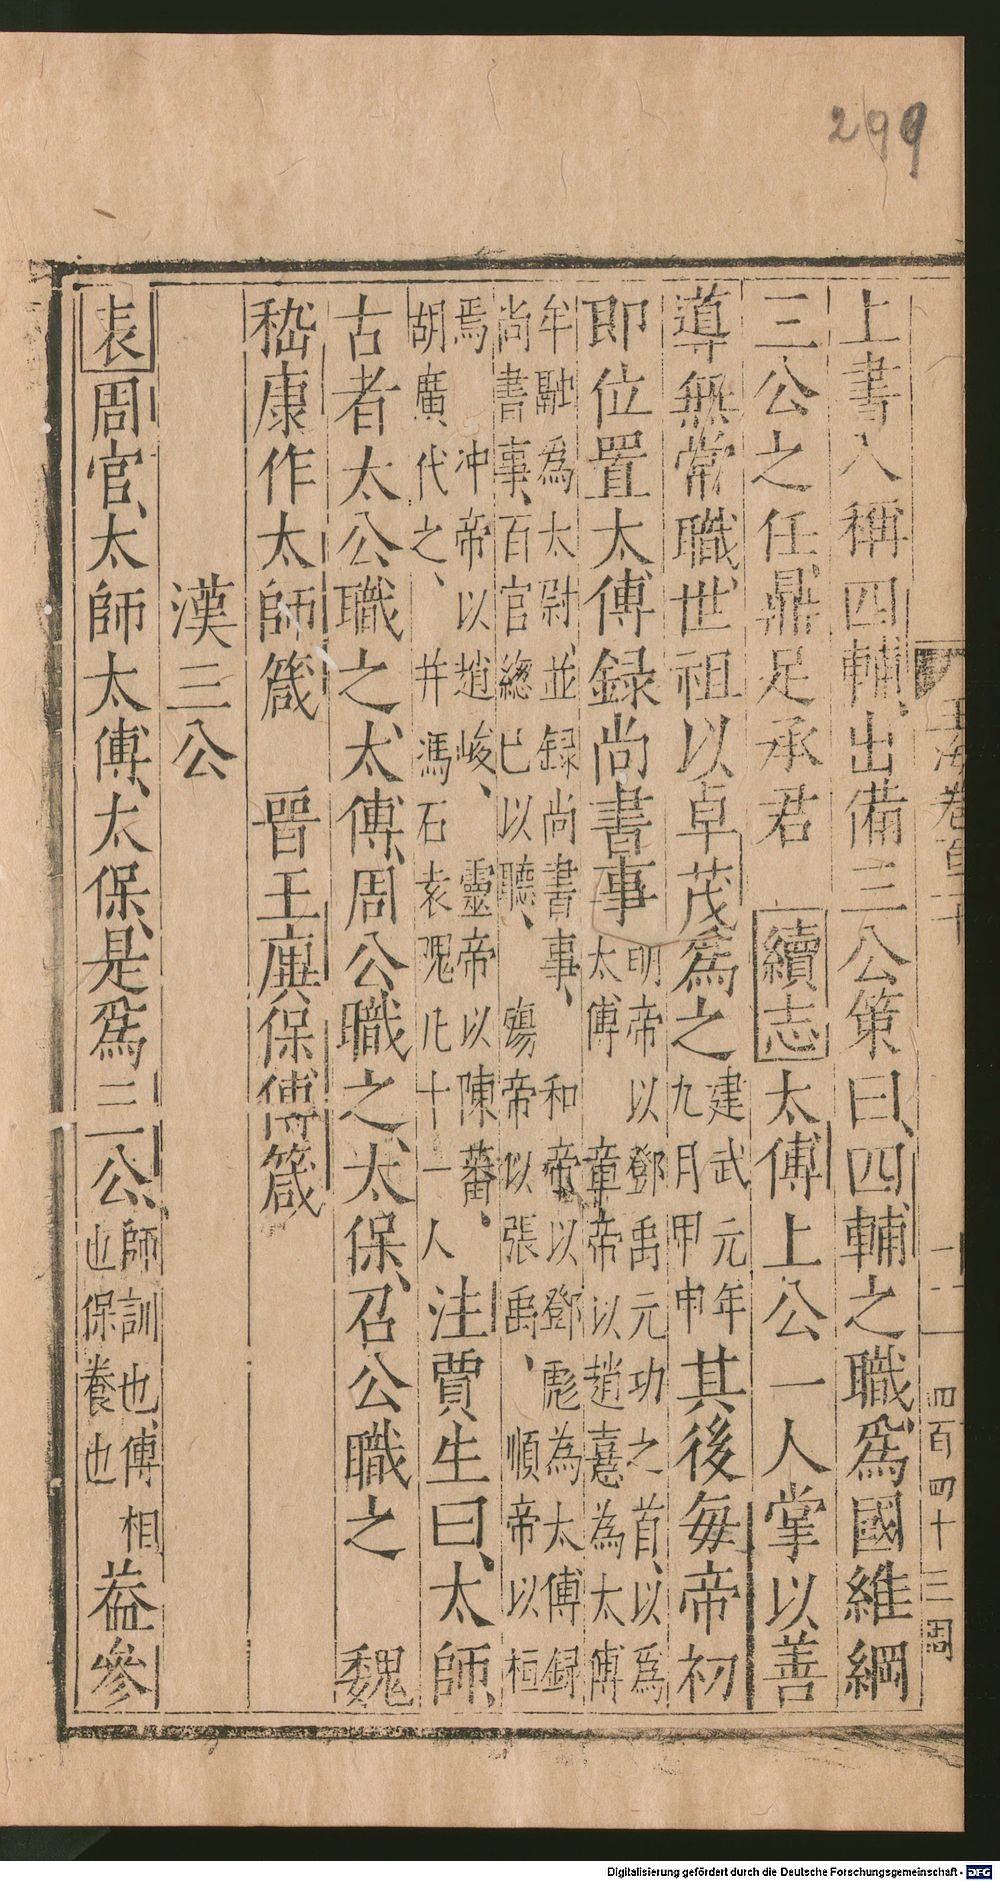 299
上書入稱四輔、出備三公策曰、四輔之職、爲國維綱
三公之任、鼎足承君 續志 太傅上公一人掌以善
導無常職、世祖以卓茂爲之建武元年九月甲申其後每帝初
即位置太傅録尚書事明帝以鄧禹元功之首、以爲太傅 章帝以趙憙為太傅
牟融為太尉、並録尚書事、 和帝以鄧彪為太傅録尚書事、百官總已以聽、 殤帝以張禹、 順帝以桓
焉 冲帝以趙峻、 靈帝以陳蕃、胡廣代之、 并馮石袁隗凡十一人 注賈生曰、太師、
古者太公職之、太傅、周公職之、太保、召公職之 魏
嵇康作太師箴 晉王廙保傅箴
漢三公
表 周官、太師太傅、太保、是爲三公、師訓也傅相也保養也葢參
玉海卷百二十
四百四十三 周
Digitalisierung gefördert durch die Deutsche Forschungsgemeinschaft - DFG